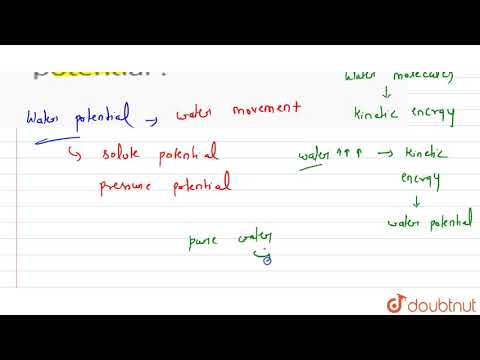 potential?
water molecules
↓
kinetic energy
Water potential → water movement
↳ solute potential
pressure potential
water ↑↑↑ → kinetic
energy
↓
water potential
pure water
doubtnut